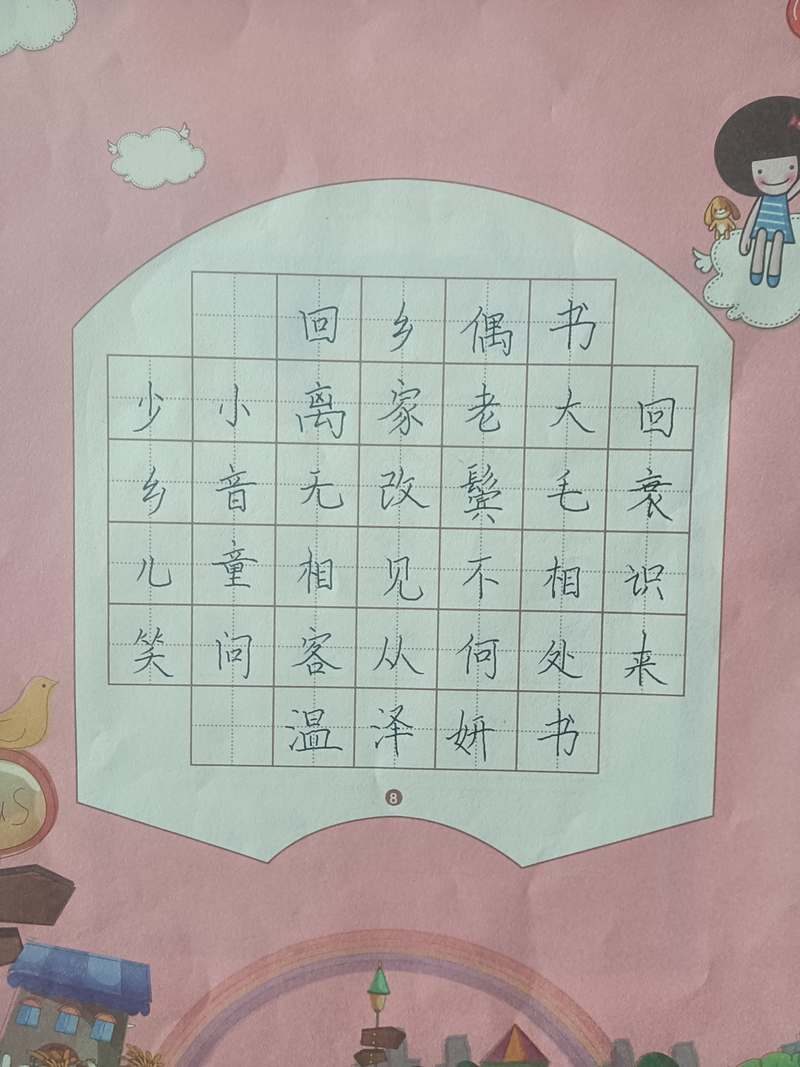 回乡偶书
少小离家老大回
乡音无改鬓毛衰
儿童相见不相识
笑问客从何处来
温泽妍书
8